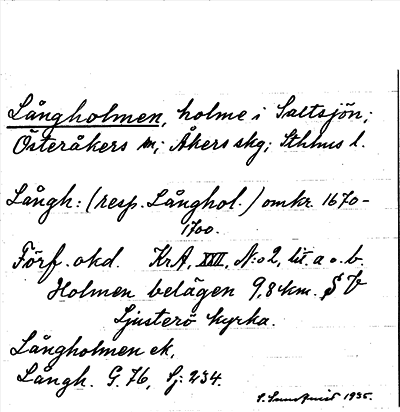 Långholmen, holme i Saltsjön;
Österåkers sn; Åkers skg; Sthlms l.
Långh: (resp. Långhol.) omkr. 1670-
1700.
Förf. okd. KrA, XXII, N:o 2, litt a o. b.
Holmen belägen 9,8 km.
Ljusterö kyrka.
Långholmen ek,
Långh. G. 76, Sj: 234.
1935.